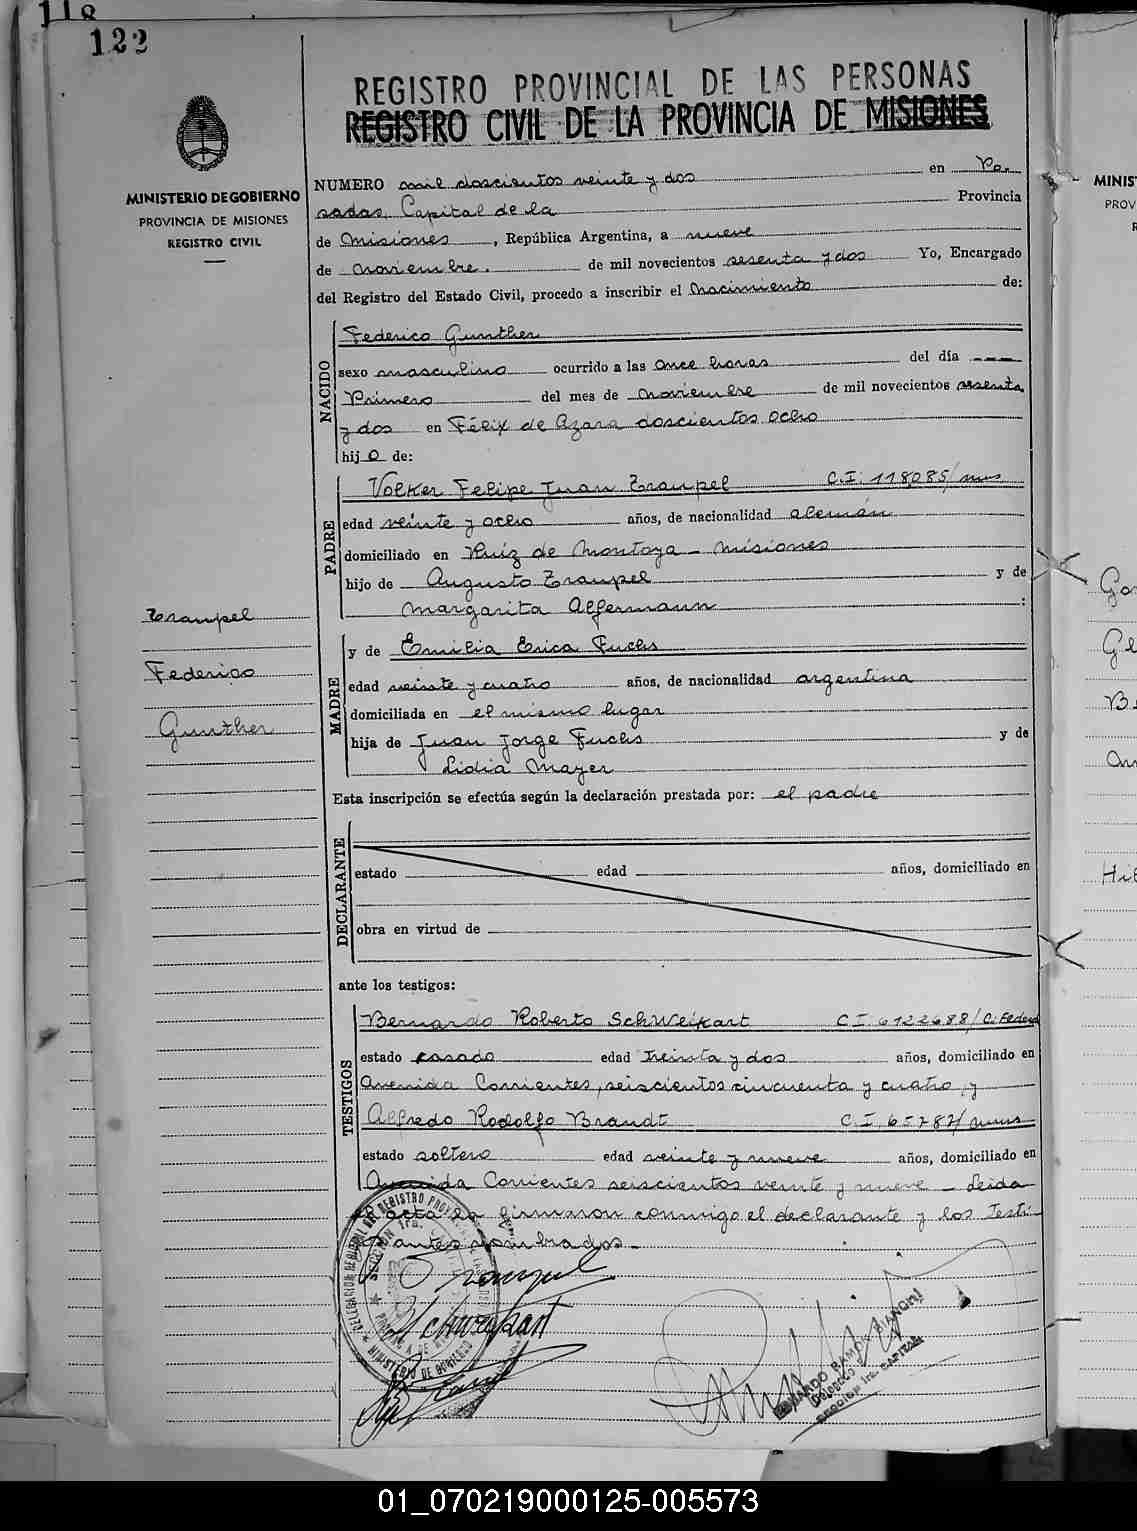 118
122
MINISTERIO DE GOBIERNO
PROVINCIA DE MISIONES
REGISTRO CIVIL
REGISTRO PROVINCIAL DE LAS PERSONAS
REGISTRO CIVIL DE LA PROVINCIA DE MISIONES
NUMERO mil doscientos veinte y dos en Po-
sadas, Capital de la Provincia
de Misiones, República Argentina, a nueve
de noviembre. de mil novecientos sesenta y dos Yo, Encargado
del Registro del Estado Civil, procedo a inscribir el Nacimiento de:
NACIDO
Federico Gunther
sexo masculino ocurrido a las once horas del día ---
Primero del mes de noviembre de mil novecientos sesenta
y dos en Félix de Azara doscientos ocho
hijo de:
PADRE
Volker Felipe Juan Traupel C.I. 118.085/mns
edad veinte y ocho años, de nacionalidad alemán
domiciliado en Ruiz de Montoya - Misiones
hijo de Augusto Traupel y de
Margarita Affermann :
MADRE
y de Emilia Erica Fuchs
edad veinte y cuatro años, de nacionalidad argentina
domiciliada en el mismo lugar
hija de Juan Jorge Fuchs y de
Lidia Mayer
Traupel
Federico
Gunther
Esta inscripción se efectúa según la declaración prestada por: el padre
DECLARANTE
estado edad años, domiciliado en
obra en virtud de
ante los testigos:
TESTIGOS
Bernardo Roberto Schweikart C.I. 6122688/C. Federal
estado casado edad treinta y dos años, domiciliado en
Avenida Corrientes, seiscientos cincuenta y cuatro, y
Alfredo Rodolfo Brandt C.I. 65787/mns
estado soltero edad veinte y nueve años, domiciliado en
Avenida Corrientes seiscientos veinte y nueve - Leida
acta la firmaron conmigo el declarante y los Testi-
antes nombrados -
Traupel
Schweikart
RAMON
Delegado
SECCION 1ra. CAPITAL
SECCION 1ra.
MINISTERIO DE GOBIERNO
MINIS
PROV
01_070219000125-005573